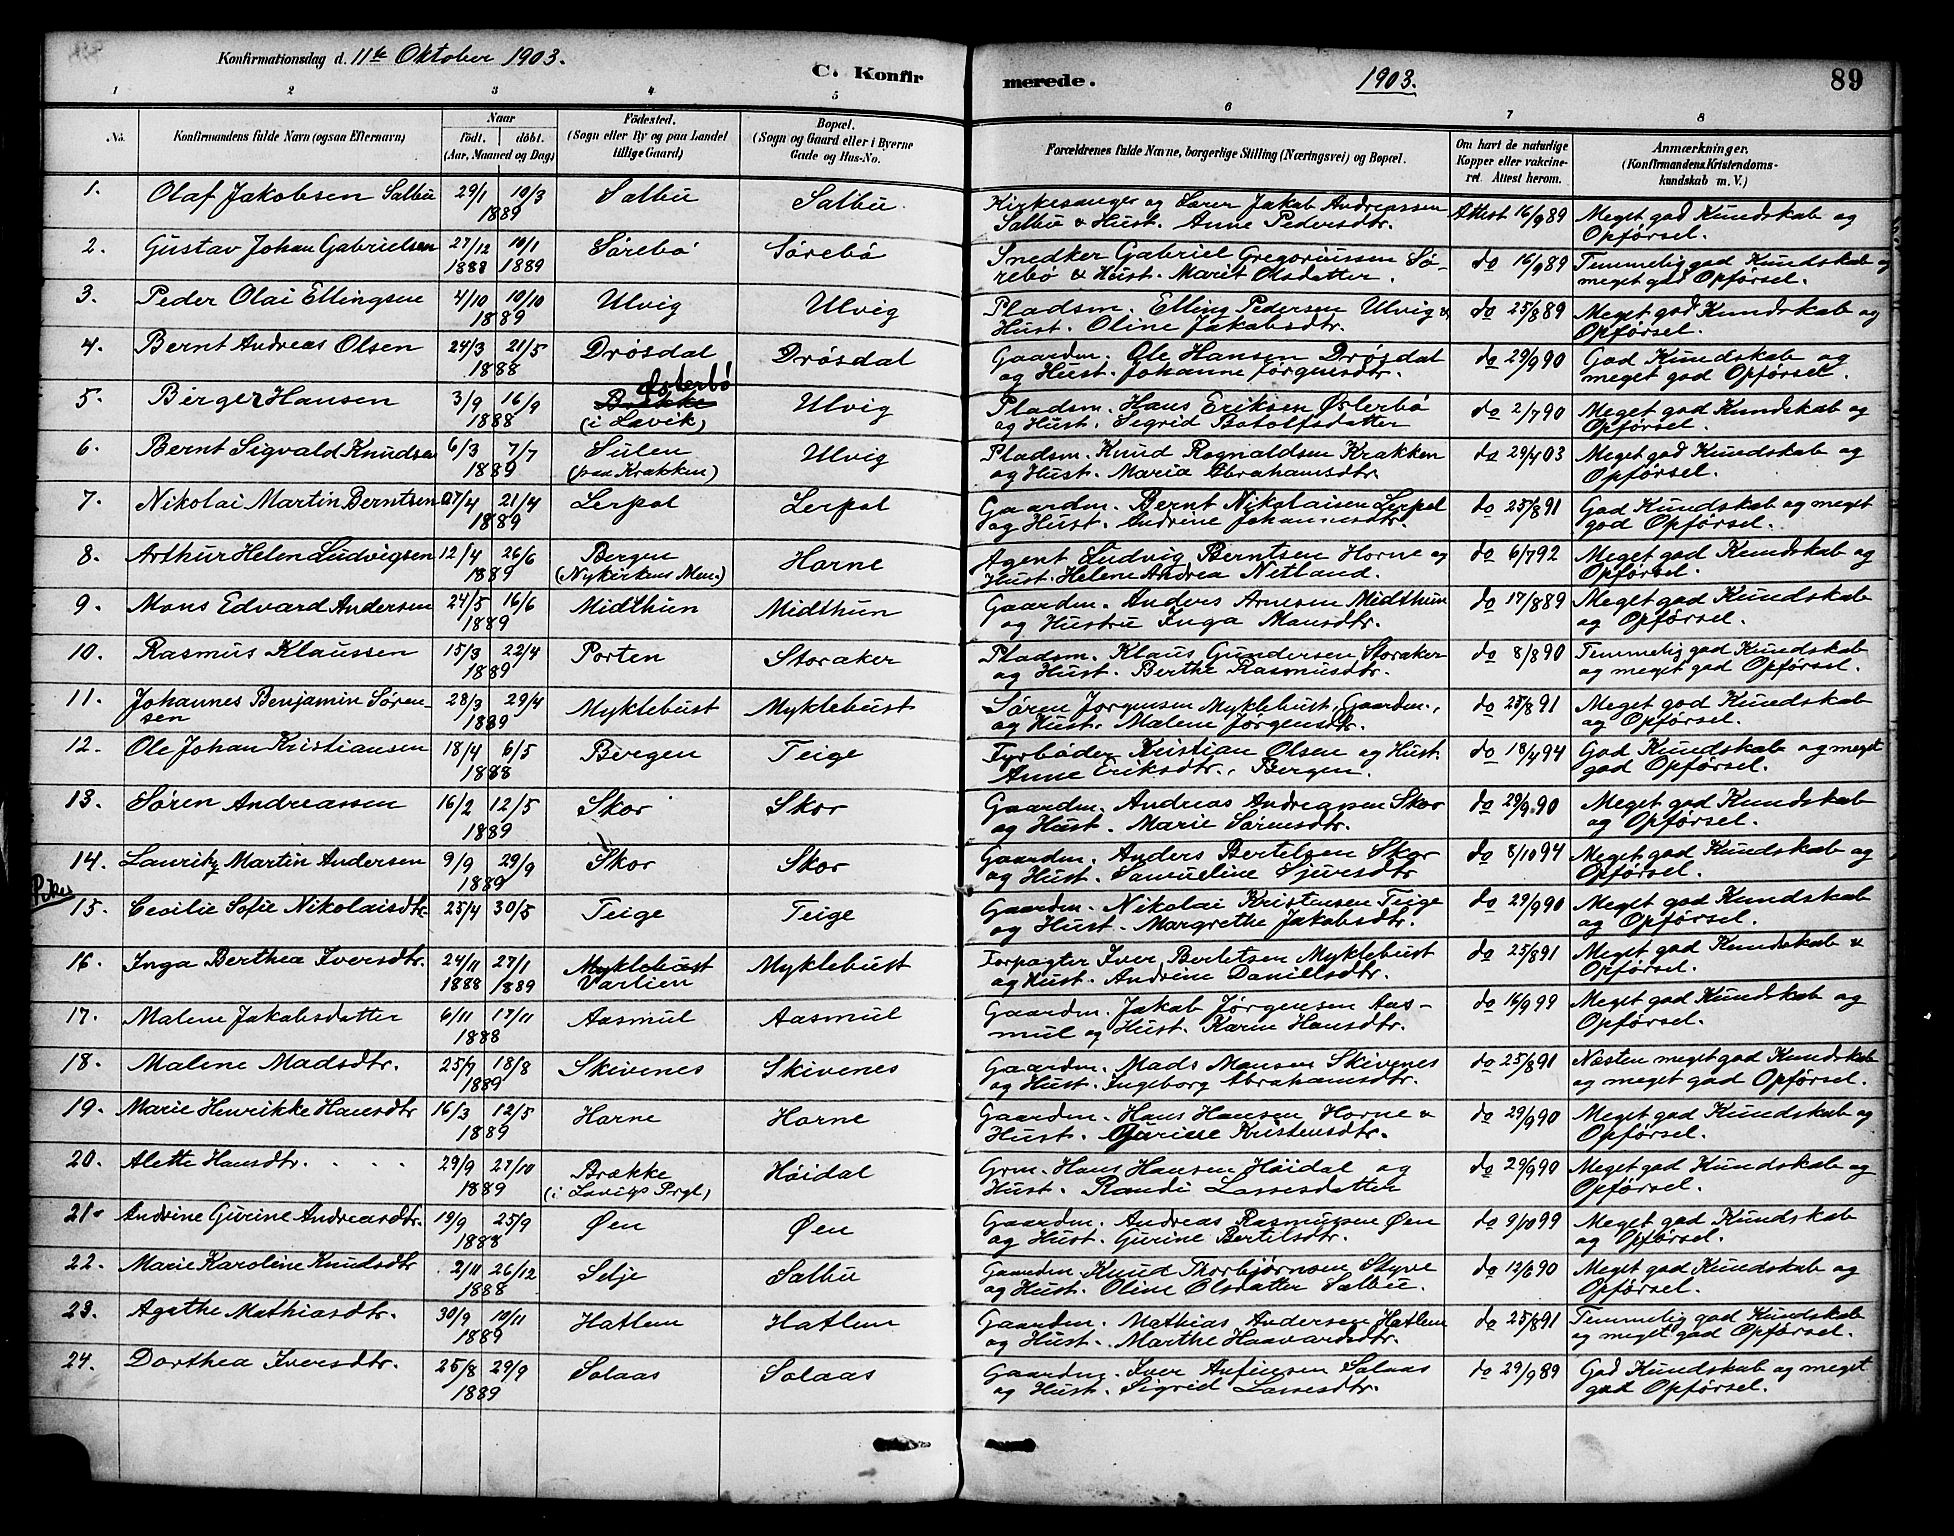 Konfirmationsdag d. 11te Oktober 1903.
C. Konfir
merede.
1903.
89
1 2 3 4 5 6 7 8
No. | Konfirmandens fulde Navn (ogsaa Efternavn) | Naar födt. döbt. (Aar, Maaned og Dag) | Födested. (Sogn eller By og paa Landet tillige Gaard) | Bopæl. (Sogn og Gaard eller i Byerne Gade og Hus-No. | Forældrenes fulde Navne, borgerlige Stilling (Næringsvei) og Bopæl. | Om havt de naturlige Kopper eller vakcineret. Attest herom. | Anmærkninger. (Konfirmandens Kristendomskundskab m. V.)
1. Olaf Jakobsen Salbu 29/1 10/3 1889 Salbu Salbu. Kirkesanger og Lærer Jakob Andreassen Attest 16/9 89 Meget god Kundskab og
Salbu & Hust. Anne Pedersdtr. Opförsel.
2. Gustav Johan Gabrielsen 27/12 1888 10/1 1889 Sørebö Sørebö Snedker Gabriel Gregoriussen Sø- do 16/9 89 Temmelig god Kundskab og
rebö & Hust. Marit Olsdatter. meget god Opførsel.
3. Peder Olai Ellingsen 4/10 10/10 1889 Ulvig Ulvig Pladsm. Elling Pedersen Ulvig & do 25/8 89 Meget god Kundskab og
Hust. Oline Jakobsdtr. Opførsel.
4. Bernt Andreas Olsen 24/3 21/5 1888 Drösdal Drösdal Gaardm. Ole Hansen Drösdal do 29/9 90 God Kundskab og
og Hust. Johanne Jörgensdtr. meget god Opförsel.
5. Birger Hansen 3/9 16/9 1888 Østerbö (i Lavik) Ulvig Pladsm. Hans Eriksen Østerbö do 2/7 90 Meget god Kundskab og
og Hust. Sigrid Botolfsdatter Opførsel.
6. Bernt Sigvald Knudsen 6/3 7/7 1889 Sulen (paa Krakken) Ulvig Pladsm. Knud Rognaldsen Krakken do 29/4 03 Meget god Kundskab og
og Hust. Maria Abrahamsdtr. Opførsel.
7. Nikolai Martin Berntsen 17/4 21/4 1889 Lerpol Lerpol Gaardm. Bernt Nikolaisen Lerpol do 25/8 91 God Kundskab og meget
og Hust. Andrine Johannesdtr. god Opførsel.
8. Arthur Helen Ludvigsen 12/4 26/6 1889 Bergen (Nykirkens Men.) Horne Agent Ludvig Berntsen Horne og do 6/7 92 Meget god Kundskab og
Hust. Helene Andrea Netland. Opførsel.
9. Mons Edvard Andersen 24/5 16/6 1889 Midthun Midthun Gaardm. Anders Arnesen Midthun do 17/8 89 Meget god Kundskab
og Hustru Inga Monsdtr. og Opførsel.
10. Rasmus Klaussen 15/3 22/4 1889 Porten Storaker Pladsm. Klaus Gundersen Storaker do 8/8 90 Temmelig god Kundskab
og Hust. Berthe Rasmusdtr. og meget god Opførsel.
11. Johannes Benjamin Sören 28/3 29/4 1889 Myklebust Myklebust Søren Jørgensen Myklebust, Gaardm., do 25/8 91 Meget god Kundskab
sen og Hust. Malene Jørgensdtr. og Opførsel.
12. Ole Johan Kristiansen 18/4 6/5 1888 Bergen Teige Fyrböder Kristian Olsen og Hust. do 18/4 94 God Kundskab og meget
Anne Eriksdtr., Bergen. god Opførsel.
13. Søren Andreassen 16/2 12/5 1889 Skor Skor Gaardm. Andreas Andreassen Skor do 29/9 90 Meget god Kundskab
og Hust. Marie Sørensdtr. og Opførsel.
14. Lauritz Martin Andersen 9/9 29/9 1889 Skor Skor Gaardm. Anders Bertelsen Skor do 8/10 94 Meget god Kundskab og
og Hust. Samueline Sjursdtr Opførsel.
15. Cecilie Sofie Nikolaisdtr. 25/4 30/5 Teige Teige Gaardm. Nikolai Kristensen Teige do 29/9 90 Meget god Kundskab
og Hust. Margrethe Jakobsdtr. og Opførsel.
16. Inga Berthea Iversdtr. 24/11 1888 27/1 1889 Myklebust Varlien Myklebust Forpagter Iver Berletsen Myklebust do 25/8 91 Meget god Kundskab &
og Hust. Andrine Danielsdtr. Opførsel.
17. Malene Jakobsdatter 6/11 17/11 1888 Aasmul Aasmul Gaardm. Jakob Jørgensen Aas- do 16/9 99 Meget god Kundskab og
mul og Hust. Karin Hansdtr. Opførsel.
18. Malene Madsdtr. 25/7 18/8 1889 Skivenes Skivenes Gaardm. Mads Monsen Skivenes do 25/8 91 Næsten meget god Kundskab
og Hust. Ingeborg Abrahamsdtr. og meget god Opførsel.
19. Marie Henrikke Hansdtr 16/3 12/5 1889 Horne Horne Gaardm. Hans Hansen Horne & do 29/9 90 Meget god Kundskab og
Hust. Gurine Kristensdtr. Opførsel.
20. Alette Hansdtr. 29/9 27/10 1889 Brække (i Lavigs Prgl) Höidal Grm. Hans Hansen Höidal og do 29/9 90 Meget god Kundskab og
Hust. Randi Lassesdatter Opførsel.
21. Andrine Gurine Andreasdtr. 19/9 25/9 1888 Øen Øen Gaardm. Andreas Rasmussen Øen do 9/10 99 Meget god Kundskab
og Hust. Gurine Bertilsdtr. og Opførsel.
22. Marie Karoline Knudsdtr 2/11 26/12 1888 Selje Salbu Gaardm. Knud Thorbjørnsen Styve do 12/6 90 Meget god Kundskab og
og Hust. Oline Olsdatter Salbu. Opførsel.
23. Agathe Mathiasdtr. 30/9 10/11 1889 Hatlem Hatlem Gaardm. Mathias Andersen Hatlem do 25/8 91 Temmelig god Kundskab
og Hust. Marthe Haavardsdtr. og meget god Opførsel.
24. Dorthea Iversdtr. 25/8 29/9 1889 Solaas Solaas Gaardm. Iver Anfinsen Solaas do 29/9 89 God Kundskab og meget
og Hust. Sigrid Lassesdtr. god Opførsel.